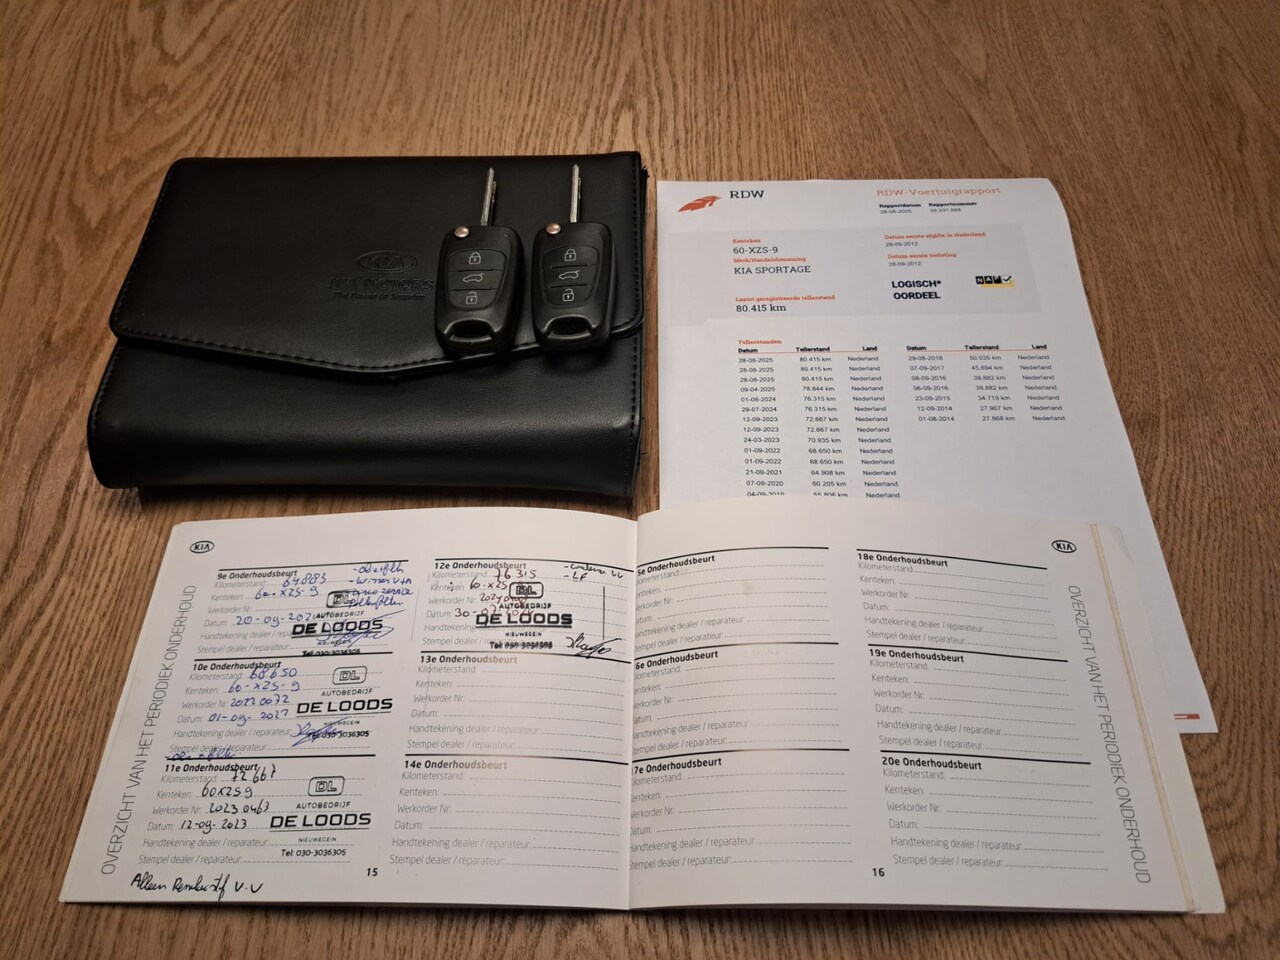 KIA
KIA MOTORS
The Power to Surprise
RDW
RDW-Voertuigrapport
Rapportdatum Rapportnummer
28-08-2025
Kenteken
60-XZS-9
Merk/Handelsbenaming
KIA SPORTAGE
Datum eerste afgifte in Nederland
28-09-2012
Datum eerste toelating
28-09-2012
LOGISCH*
OORDEEL
NAP
Laatst geregistreerde tellerstand
80.415 km
Tellerstanden
Datum Tellerstand Land
28-08-2025 80.415 km Nederland
28-08-2025 80.415 km Nederland
28-08-2025 80.415 km Nederland
09-04-2025 78.844 km Nederland
01-08-2024 76.315 km Nederland
29-07-2024 76.315 km Nederland
12-09-2023 72.667 km Nederland
12-09-2023 72.667 km Nederland
24-03-2023 70.935 km Nederland
01-09-2022 68.650 km Nederland
01-09-2022 68.650 km Nederland
21-09-2021 64.908 km Nederland
07-09-2020 60.205 km Nederland
04-09-2019 Nederland
Datum Tellerstand Land
29-08-2018 50.035 km Nederland
07-09-2017 45.694 km Nederland
08-09-2016 39.882 km Nederland
06-09-2016 39.882 km Nederland
23-09-2015 34.719 km Nederland
12-09-2014 27.967 km Nederland
01-08-2014 27.868 km Nederland
KIA
OVERZICHT VAN HET PERIODIEK ONDERHOUD
9e Onderhoudsbeurt
Kilometerstand: 64883
Kenteken: 60-XZS-9
Werkorder Nr:
Datum: 20-09-2021
Handtekening dealer / reparateur:
Stempel dealer / reparateur:
DL
AUTOBEDRIJF
DE LOODS
Tel: 030-3036305
10e Onderhoudsbeurt
Kilometerstand: 68650
Kenteken: 60-XZS-9
Werkorder Nr: 20220072
Datum: 01-09-2022
Handtekening dealer / reparateur:
Stempel dealer / reparateur:
DL
AUTOBEDRIJF
DE LOODS
NIEUWEGEIN
Tel: 030-3036305
11e Onderhoudsbeurt
Kilometerstand: 72667
Kenteken: 60XZS9
Werkorder Nr: 20230463
Datum: 12-09-2023
Handtekening dealer / reparateur:
Stempel dealer / reparateur:
DL
AUTOBEDRIJF
DE LOODS
NIEUWEGEIN
Tel: 030-3036305
Alleen Remvloeistof V.V
15
12e Onderhoudsbeurt
Kilometerstand: 76315
Kenteken: 60-XZS
Werkorder Nr:
Datum: 30-07
Handtekening
Stempel dealer / reparateur:
DL
AUTOBEDRIJF
DE LOODS
NIEUWEGEIN
Tel: 030-3036305
13e Onderhoudsbeurt
Kilometerstand:
Kenteken:
Werkorder Nr:
Datum:
Handtekening dealer / reparateur:
Stempel dealer / reparateur:
14e Onderhoudsbeurt
Kilometerstand:
Kenteken:
Werkorder Nr:
Datum:
Handtekening dealer / reparateur:
Stempel dealer / reparateur:
5e Onderhoudsbeurt
Kilometerstand:
Kenteken:
Werkorder Nr:
Datum:
Handtekening dealer / reparateur:
Stempel dealer / reparateur:
6e Onderhoudsbeurt
Kilometerstand:
Kenteken:
Werkorder Nr:
Datum:
Handtekening dealer / reparateur:
Stempel dealer / reparateur:
7e Onderhoudsbeurt
Kilometerstand:
Kenteken:
Werkorder Nr:
Datum:
Handtekening dealer / reparateur:
Stempel dealer / reparateur:
16
KIA
18e Onderhoudsbeurt
Kilometerstand:
Kenteken:
Werkorder Nr:
Datum:
Handtekening dealer / reparateur:
Stempel dealer / reparateur:
19e Onderhoudsbeurt
Kilometerstand:
Kenteken:
Werkorder Nr:
Datum:
Handtekening dealer / reparateur:
Stempel dealer / reparateur:
20e Onderhoudsbeurt
Kilometerstand:
Kenteken:
Werkorder Nr:
Datum:
Handtekening dealer / reparateur:
Stempel dealer / reparateur:
OVERZICHT VAN HET PERIODIEK ONDERHOUD